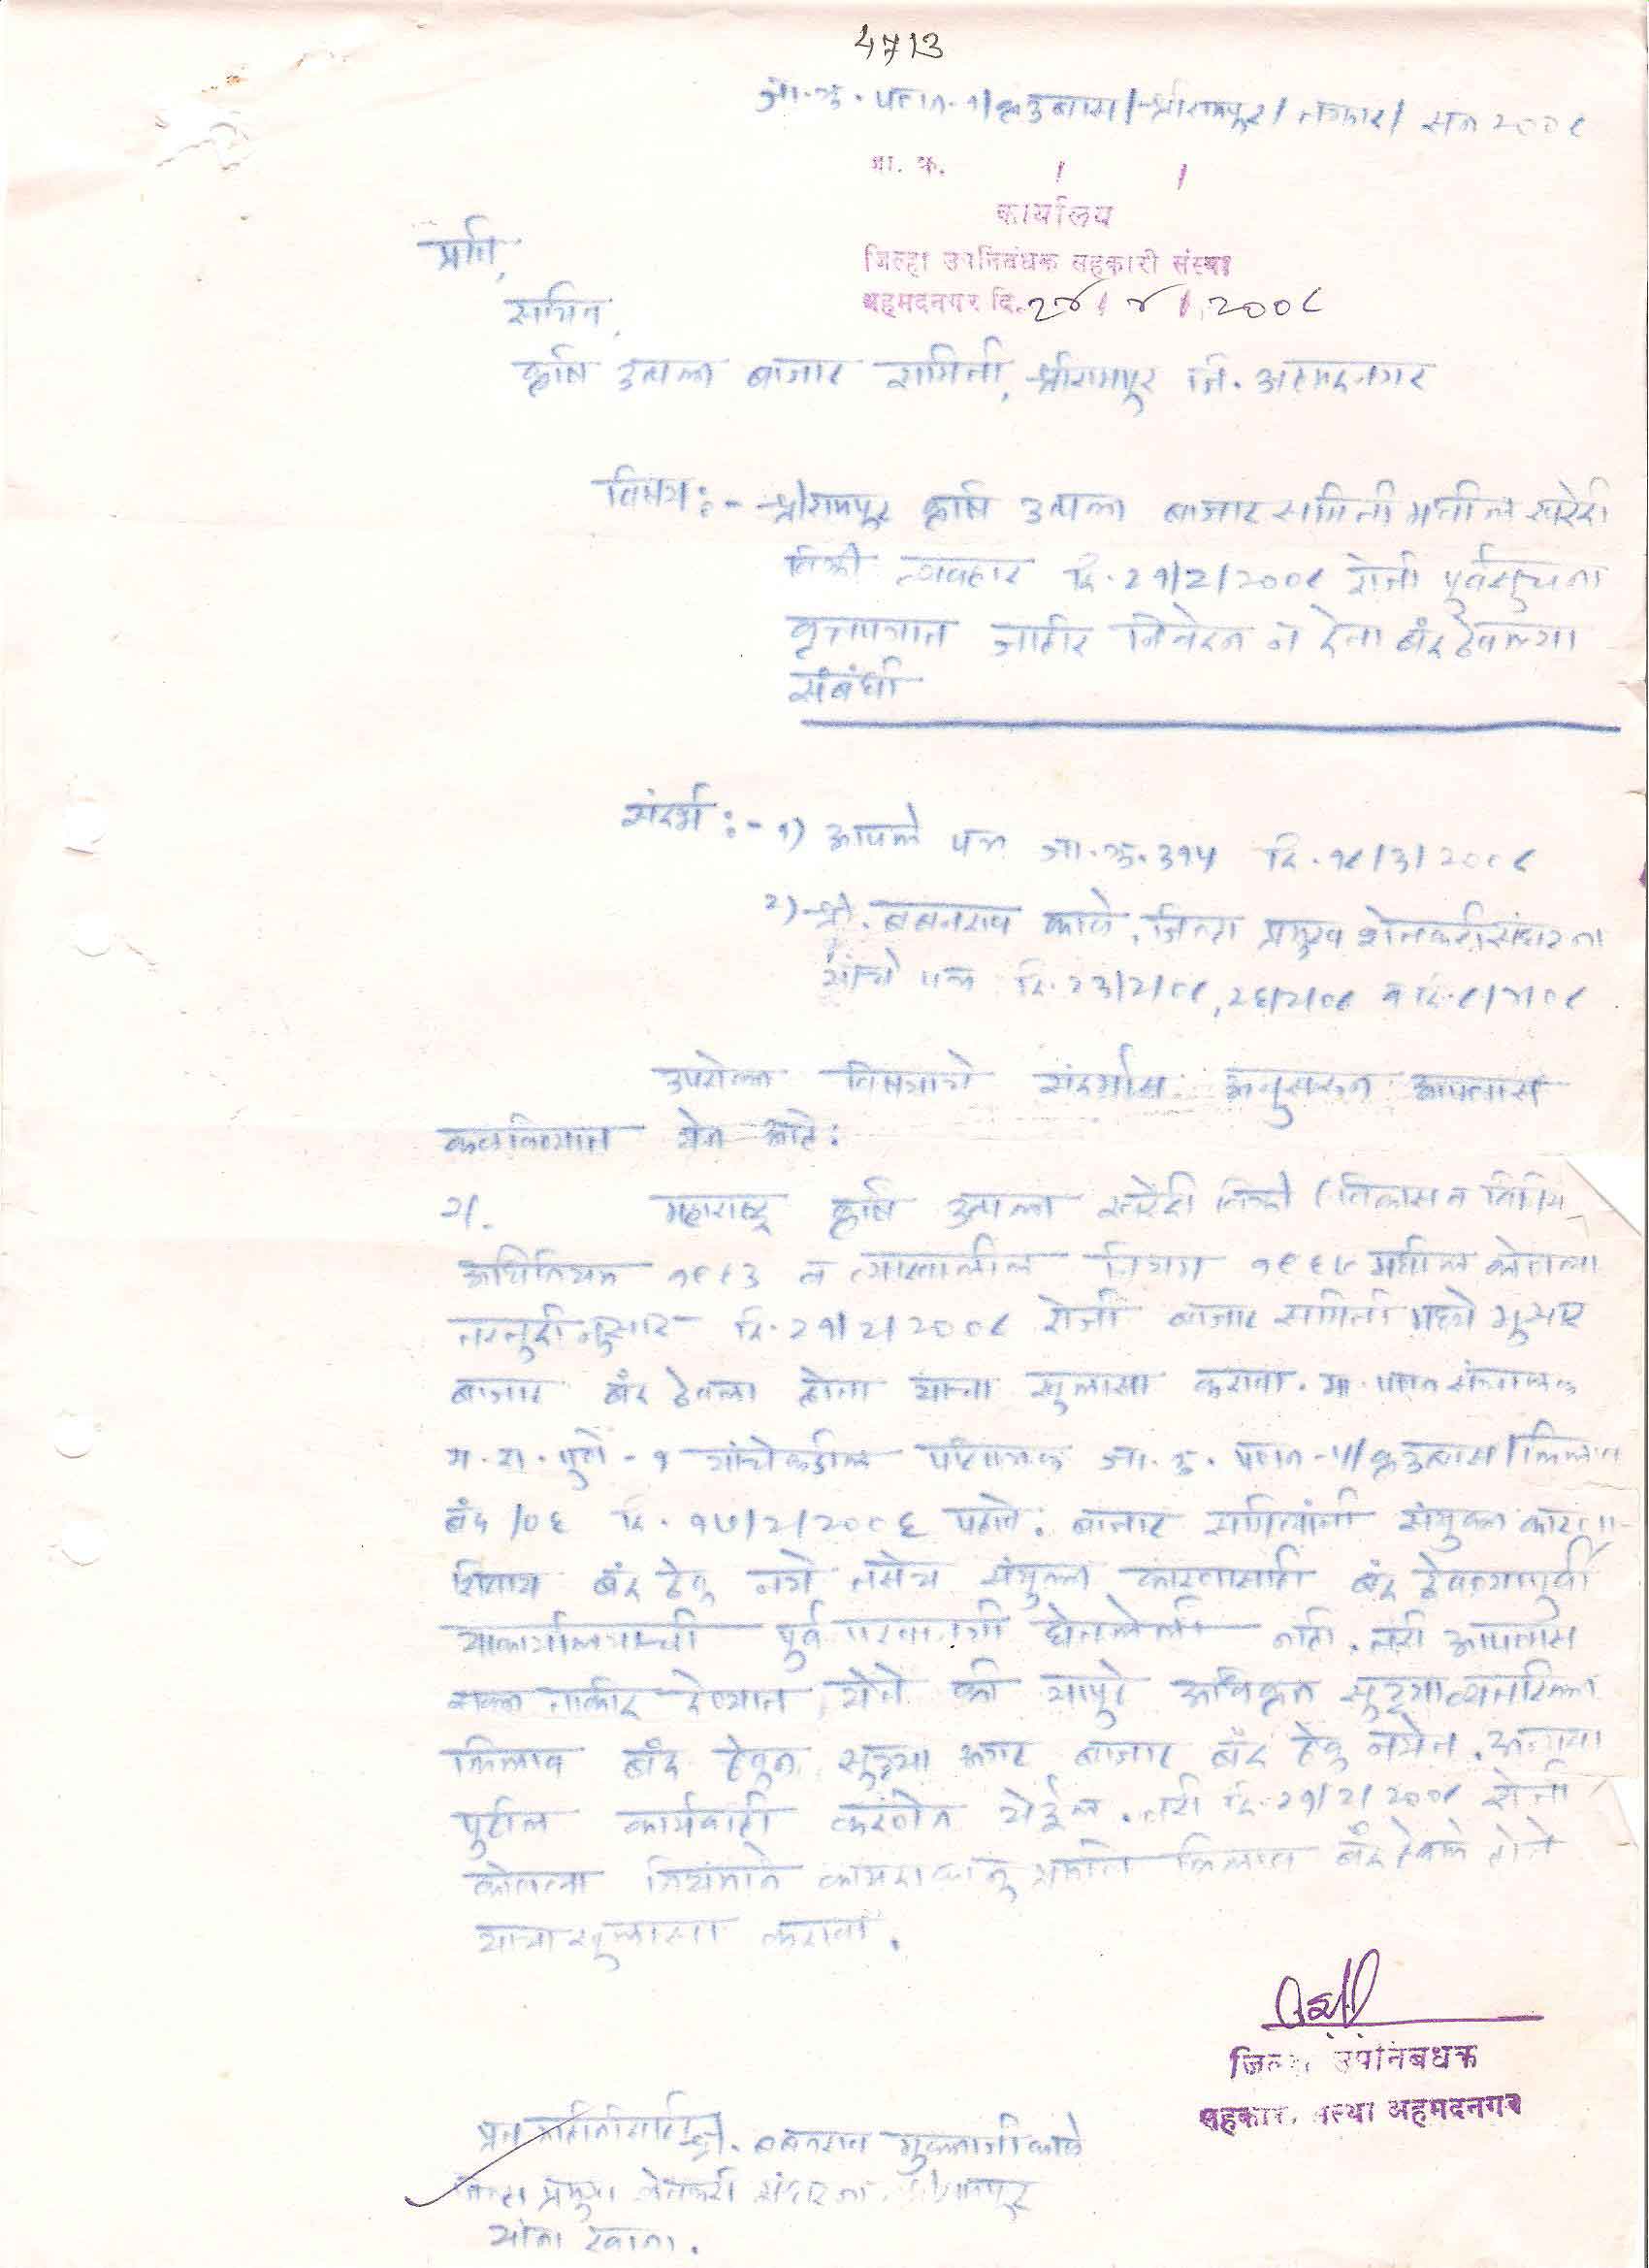 4713
जा.क्र. पणन-१/कृउबास/श्रीरामपूर/तक्रार/ सन २००८
जा. क्र. / /
कार्यालय
जिल्हा उपनिबंधक सहकारी संस्था
अहमदनगर दि. २४/४/२००८
प्रति,
सचिव,
कृषि उत्पन्न बाजार समिती, श्रीरामपूर जि. अहमदनगर
विषय:- श्रीरामपूर कृषि उत्पन्न बाजार समिती मधील खरेदी
विक्री व्यवहार दि. २१/२/२००८ रोजी पूर्वसुचना
वृत्तपत्रात जाहीर निवेदन न देता बंद ठेवल्या
संबंधी
संदर्भ:- १) आपले पत्र जा.क्र. ३१५ दि. १८/३/२००८
२) श्री. बबनराव काळे, जिल्हा प्रमुख शेतकरी संघटना
यांचे पत्र दि. २३/२/०८, २६/२/०८ व दि. ८/४/०८
उपरोक्त विषयाचे संदर्भास अनुसरुन आपणास
कळविण्यात येत आहे:
२/. महाराष्ट्र कृषि उत्पन्न खरेदी विक्री (विकास व विनियम
अधिनियम १९६३ व त्याखालील नियम १९६७ मधील कोणत्या
तरतुदीनुसार दि. २१/२/२००८ रोजी बाजार समिती मध्ये भुसार
बाजार बंद ठेवला होता याचा खुलासा करावा. मा. पणन संचालक
म.रा. पुणे-१ यांचेकडील परिपत्रक जा.क्र. पणन-५/कृउबास/लिलाव
बंद/०६ दि. १७/२/२००६ पहावे. बाजार समित्यांनी संयुक्त कारणा-
शिवाय बंद ठेवु नये तसेच संयुक्त कारणासाठी बंद ठेवण्यापुर्वी
याकार्यालयाची पुर्व परवानगी घेतलेली नाही. तरी आपणास
सक्त ताकीद देण्यात येते की यापुढे अधिकृत सुट्ट्या व्यतिरिक्त
लिलाव बंद ठेवुन सुट्ट्या अगर बाजार बंद ठेवु नयेत. अन्यथा
पुढील कार्यवाही करणेत येईल. तरी दि. २१/२/२००८ रोजी
कोणत्या नियमाने लिलाव बंद ठेवले होते
याचा खुलासा करावा.
जिल्हा उपनिबंधक
सहकारी संस्था अहमदनगर
प्रत माहितीसाठी श्री. बबनराव मुक्ताजी काळे
जिल्हा प्रमुख शेतकरी संघटना, श्रीरामपूर
यांना रवाना.